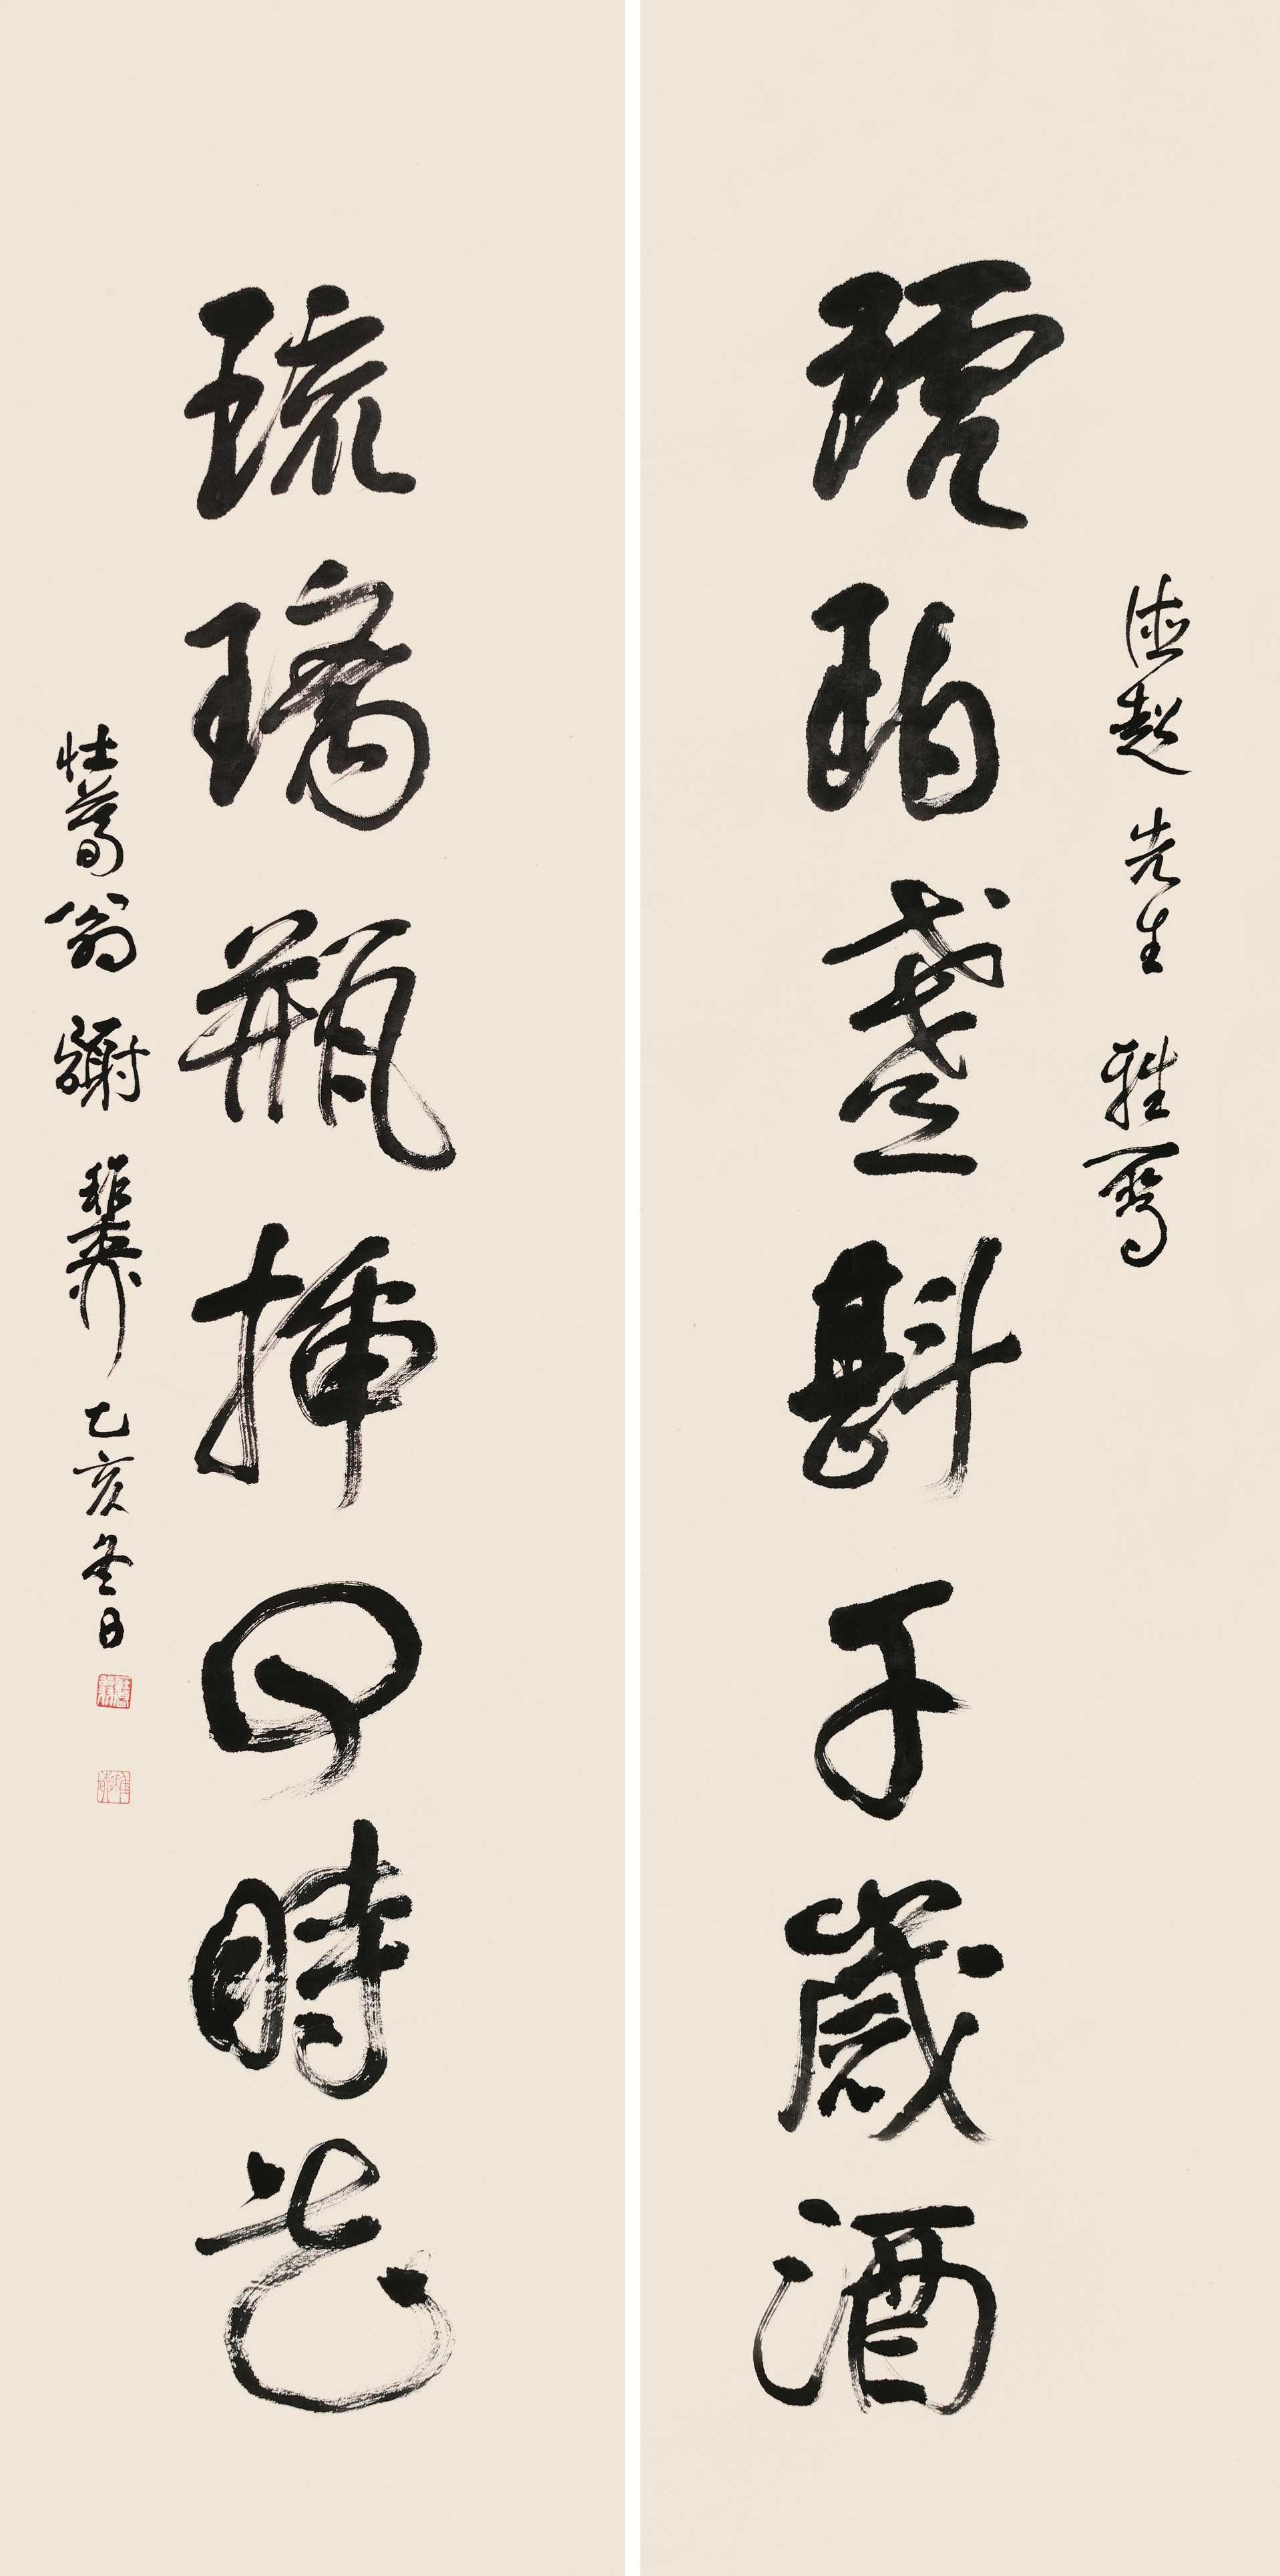 德超先生雅属
琥珀盏斟千歲酒
琉璃瓶插四時花
壮暮翁謝稚柳乙亥冬日